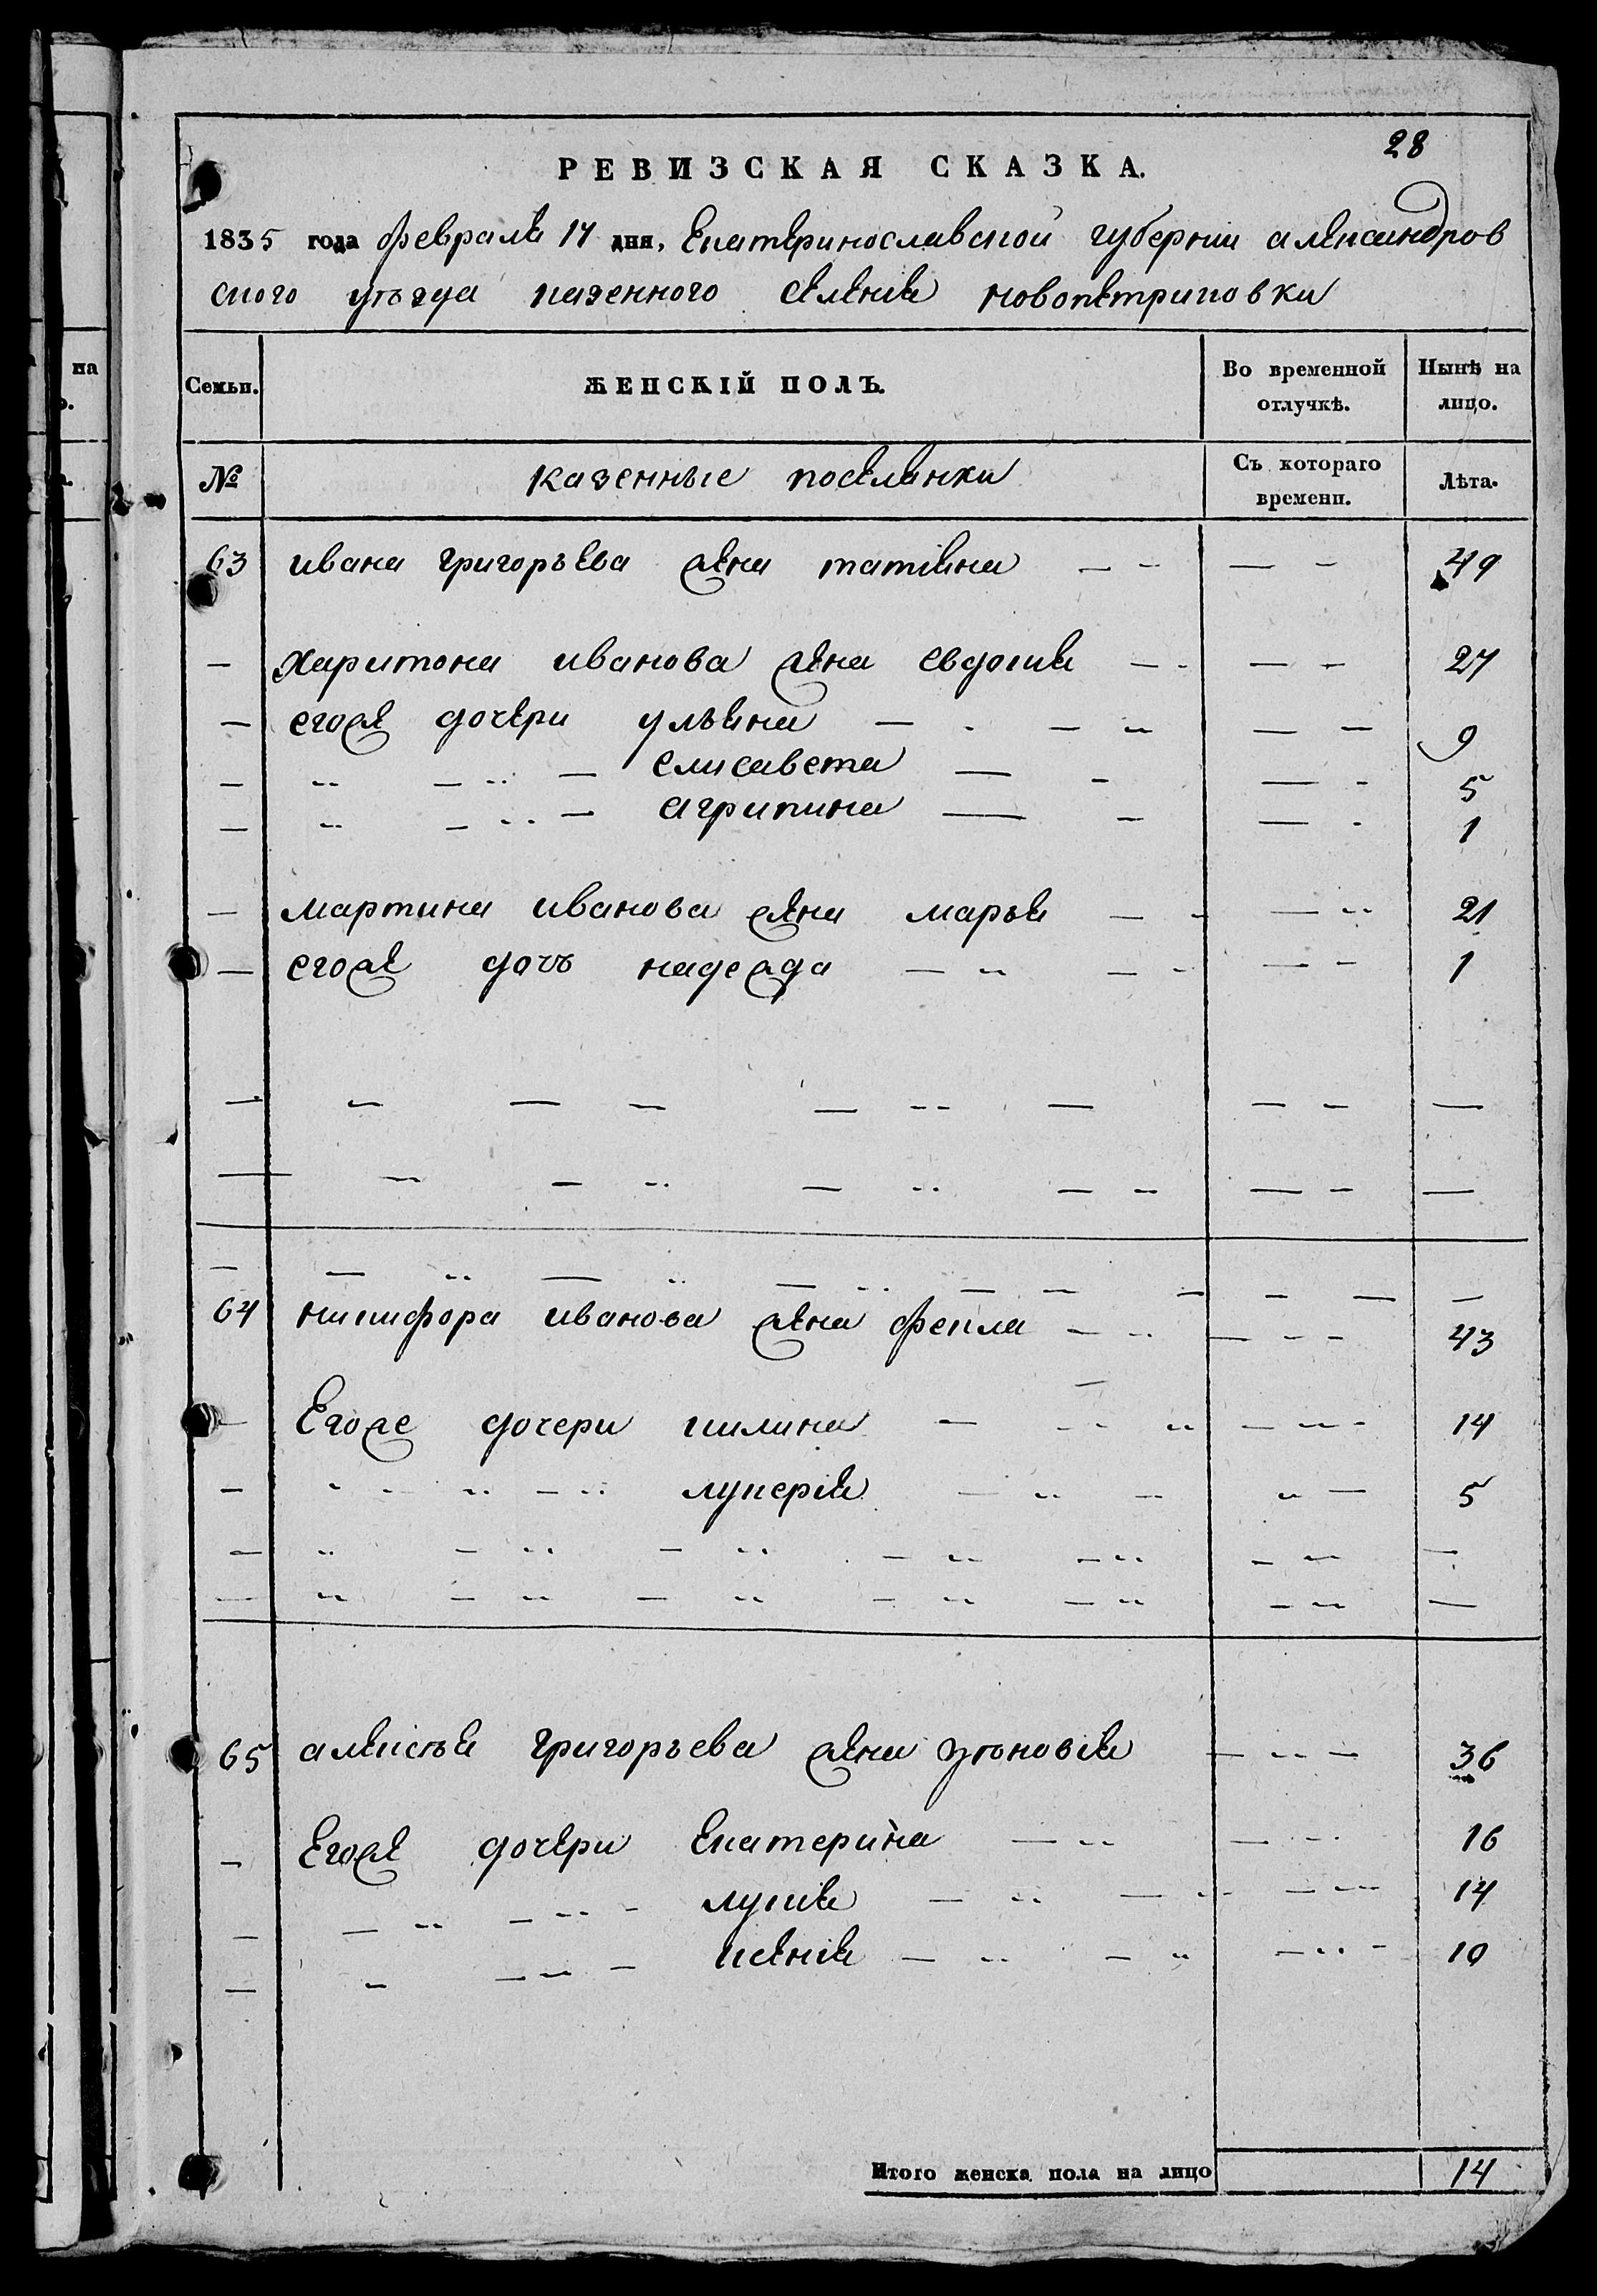 28
РЕВИЗСКАЯ СКАЗКА.
1835 года февраля 17 дня, Екатеринославской губернии александров
ского уѣзда казенного селения новопетриковки
на
Семьи. ЖЕНСКІЙ ПОЛЪ. Во временной отлучкѣ. Нынѣ на лицо.
№ казенные поселянки Съ котораго времени. Лѣта.
63 ивана григорьева жена татіяна — - — - 49
— харитона иванова жена евдокия — - — - 27
— егоже дочери ульяна — - — - — — 9
— - — - — елисавета — - — - 5
— - — - — агрипина — - — - 1
— мартина иванова жена марья — - — - 21
— егоже дочь надежда — - — - — - 1
64 никифора иванова жена фекла — - — - - 43
— Егоже дочери килина — - - - — - - 14
— - - - — - лукерія — - — - — 5
65 алексѣя григорьева жена зѣновія — - — 36
— Егоже дочери Екатерина — - — - 16
— — - — - - лукия — - — - — - 14
— - — - — ксения — - — - — - - 10
Итого женска пола на лицо 14